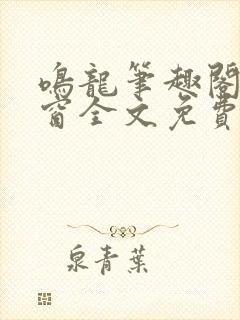 鳴龍筆趣閣
窗全文免費
泉青葉